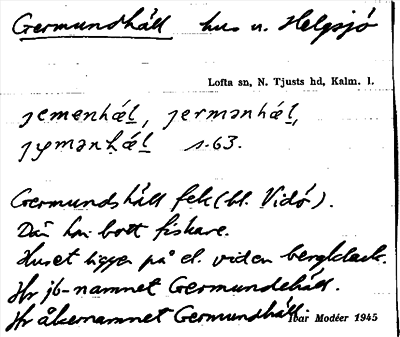 Germundhäll hus u. Helgsjö
Lofta sn, N. Tjusts hd, Kalm. l.
jemenhæl, jermənhæl,
jymənhæl s. 63.
Germundshäll fek (bl. Vidö).
Där ha bott fiskare.
Huset ligger på el. vid en bergklack.
Jfr jb-namnet Germundehäll.
Jfr åkernamnet Germundhäll.
Ivar Modéer 1945